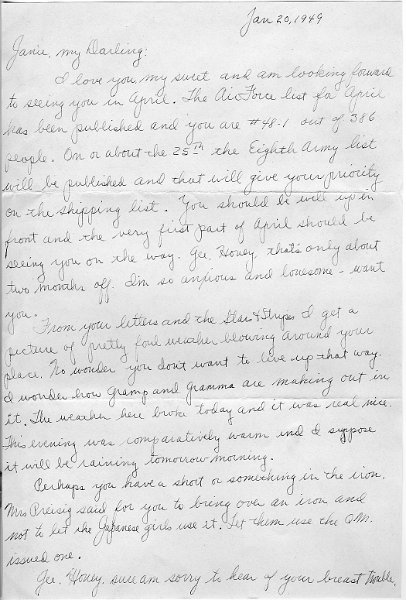 Jan 20, 1949
Janie, my Darling:
I love you my sweet and am looking forward
to seeing you in April. The Air Force list for April
has been published and you are #48-1 out of 386
people. On or about the 25th the Eighth Army list
will be published and that will give your priority
on the shipping list. You should be well up in
front and the very first part of April should be
seeing you on the way. Gee, Honey that's only about
two months off. I'm so anxious and lonesome - want
you.
From your letters and the Stars & Stripes I get a
picture of pretty foul weather blowing around your
place. No wonder you don't want to live up that way.
I wonder how Gramp and Gramma are making out in
it. The weather here broke today and it was real nice.
This evening was comparatively warm and I suppose
it will be raining tomorrow morning.
Perhaps you have a short or something in the iron.
Mrs said for you to bring over an iron and
not to let the Japanese girls use it. Let them use the Q.M.
issued one.
Gee, Honey, sure am sorry to hear of your breast trouble.